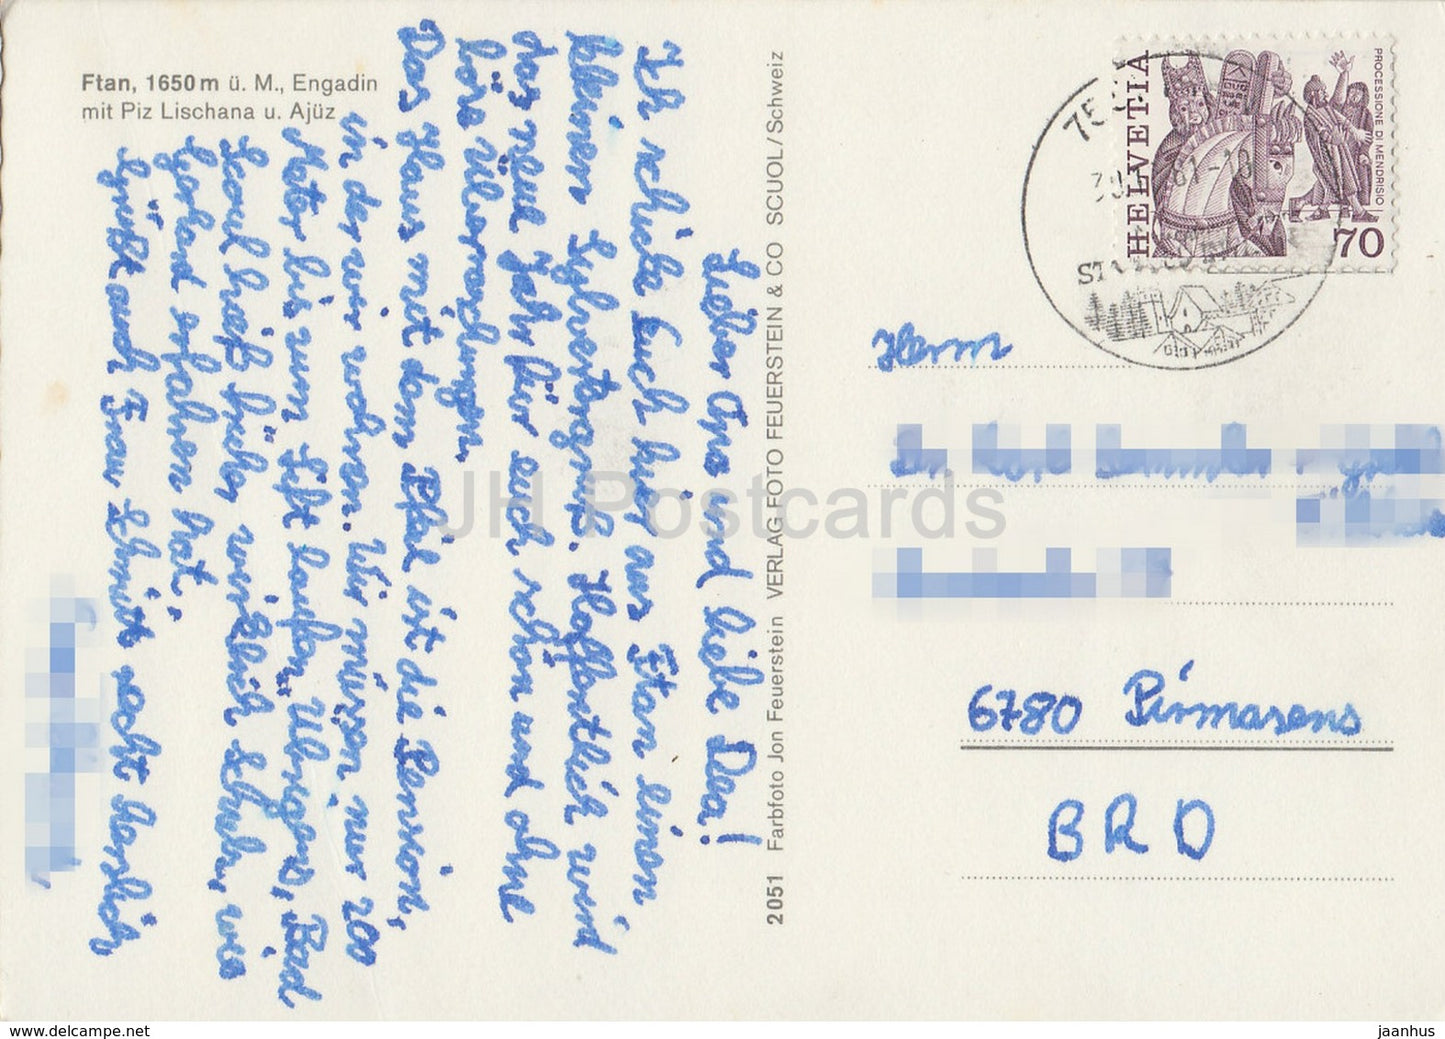 Ftan, 1650 m ü. M., Engadin
mit Piz Lischana u. Ajüz
Lieber Opa und liebe Dea!
Ich schicke Euch hier aus Ftan einen
kleinen Sylvestergruß. Hoffentlich wird
das neue Jahr für euch schön und ohne
böse Überraschungen.
Das Haus mit dem Pfeil ist die Pension,
in der wir wohnen. Wir müssen nur 200
Meter bis zum Lift laufen. Übrigens, Bad
Scoul heißt hier wirklich Schuls, wie
Gerhard erfahren hat.
Grüßt auch Frau Schmitt recht herzlich,
2051 Farbfoto Jon Feuerstein VERLAG FOTO FEUERSTEIN & CO SCUOL/Schweiz
HELVETIA
PROCESSIONE DI MENDRISIO
70
Herrn
6780 Pirmasens
BRD
JH Postcards
www.delcampe.net
jaanhus